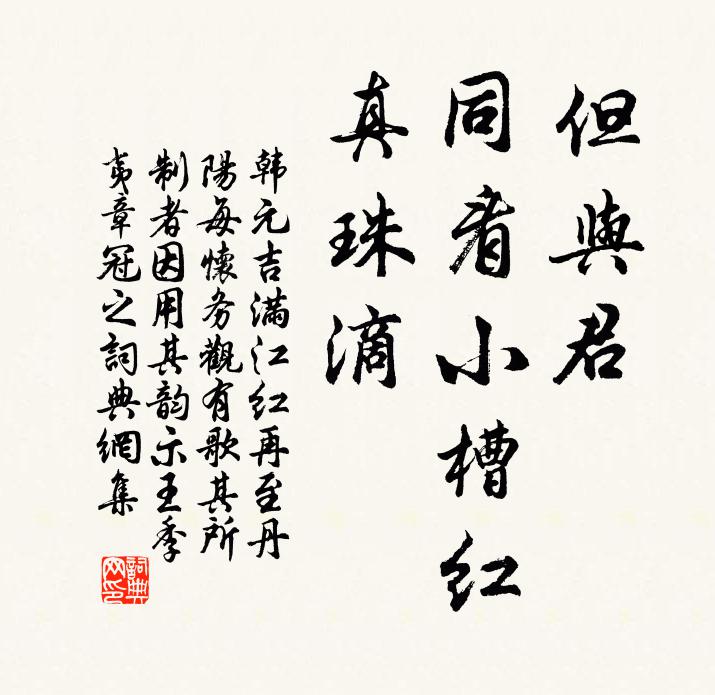 但與君
同看小槽紅
真珠滴
韩元吉满江红再至丹
陽每懷务觀有歌其所
制者因用其韵示王季
夷章冠之詞典網集
詞典网印